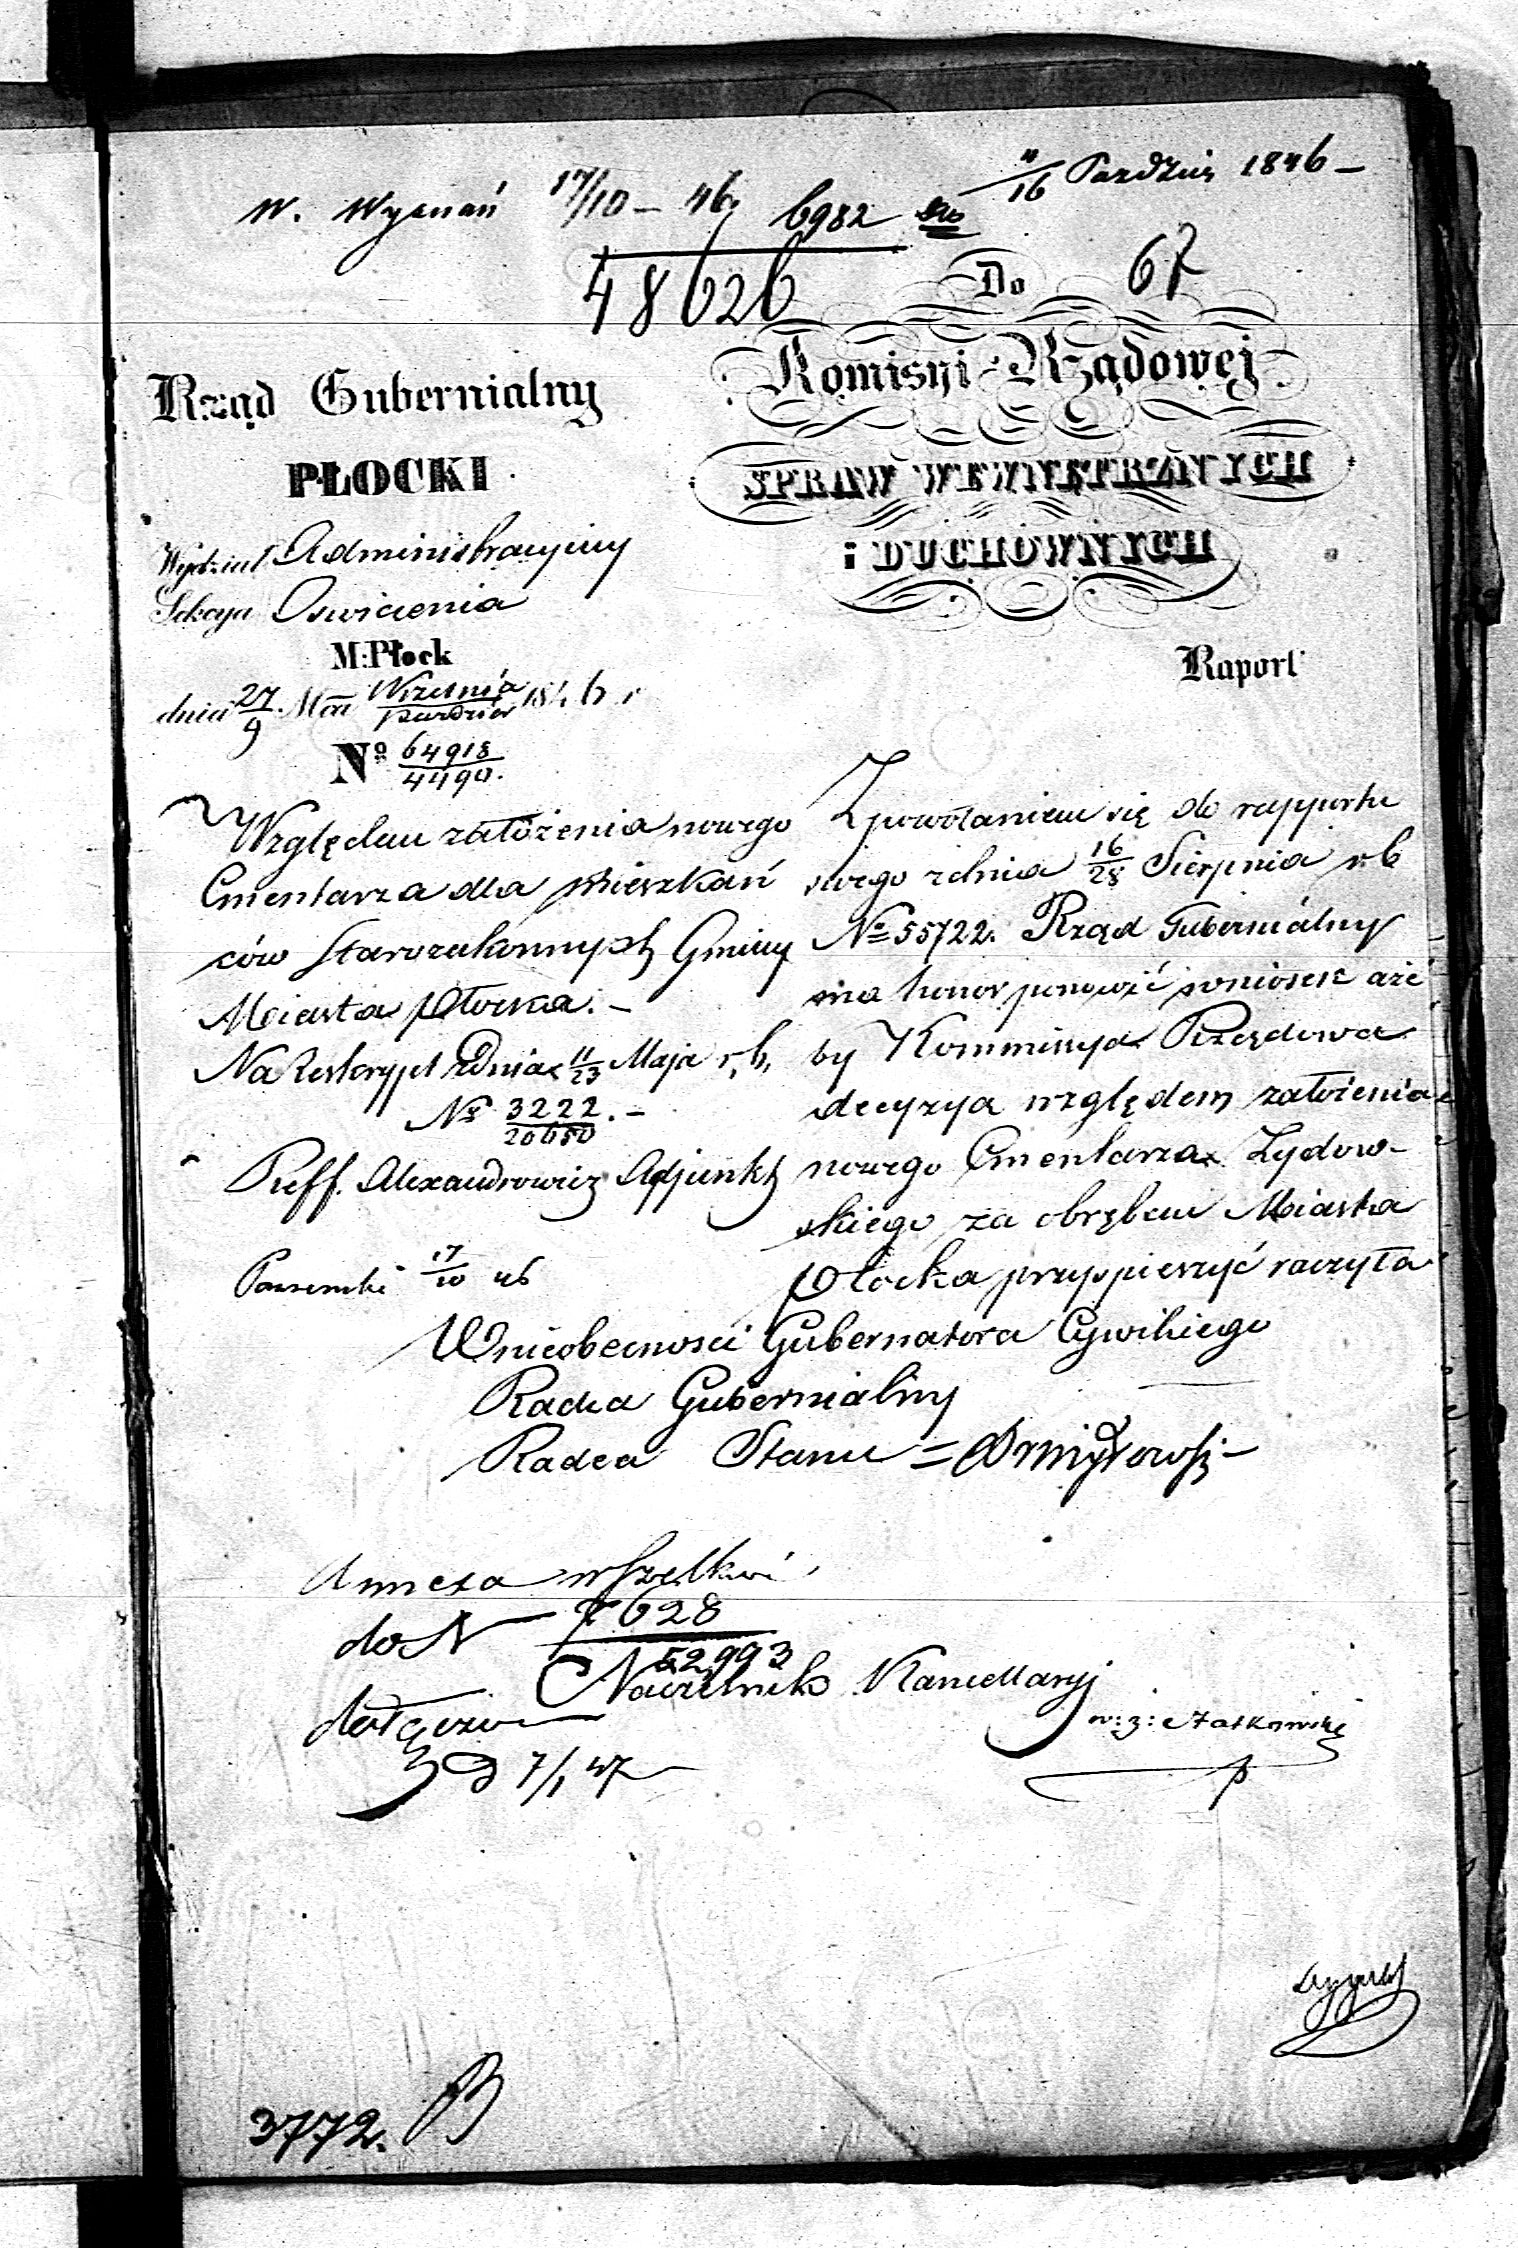 W. Wyznań 17/10 – 46 6982 4/16 Paździer 1846 –
48626
Do 67
Komisyi Rządowej
SPRAW WEWNĘTRZNYCH
i DUCHOWNYCH
Raport
Rząd Gubernialny
PŁOCKI
Wydział Administracyiny
Sekcya Oswiecenia
M: Płock
dnia 27/9 Mca Września/Paździer 1846 r
No 64918/4490.
Względem założenia nowego
Cmentarza dla Mieszkań
ców Starozakonnych Gminy
Miasta Płocka. –
Na Reskrypt z Dnia 11/23 Maja r, b,
No 3222/20650. –
Reff. Alexandrowicz Adjunkt
17/10 46
Z powołaniem się do rapportu
swego z dnia 16/28 Sierpnia r b
No 55722. Rząd Gubernialny
ma honor ponowić wniosek aże
by Kommissya Rządowa
decyzya względem założenia
nowego Cmentarza Żydow-
skiego za obrębem Miasta
Płocka przyspieszyć raczyła
W nieobecnosci Gubernatora Cywilnego
Radca Gubernialny
Radca Stanu =
Annexa wszelkie
do N 7628/52993
dołączono
7/1 47
Naczelnik Kancellaryi
w: z:
3772.